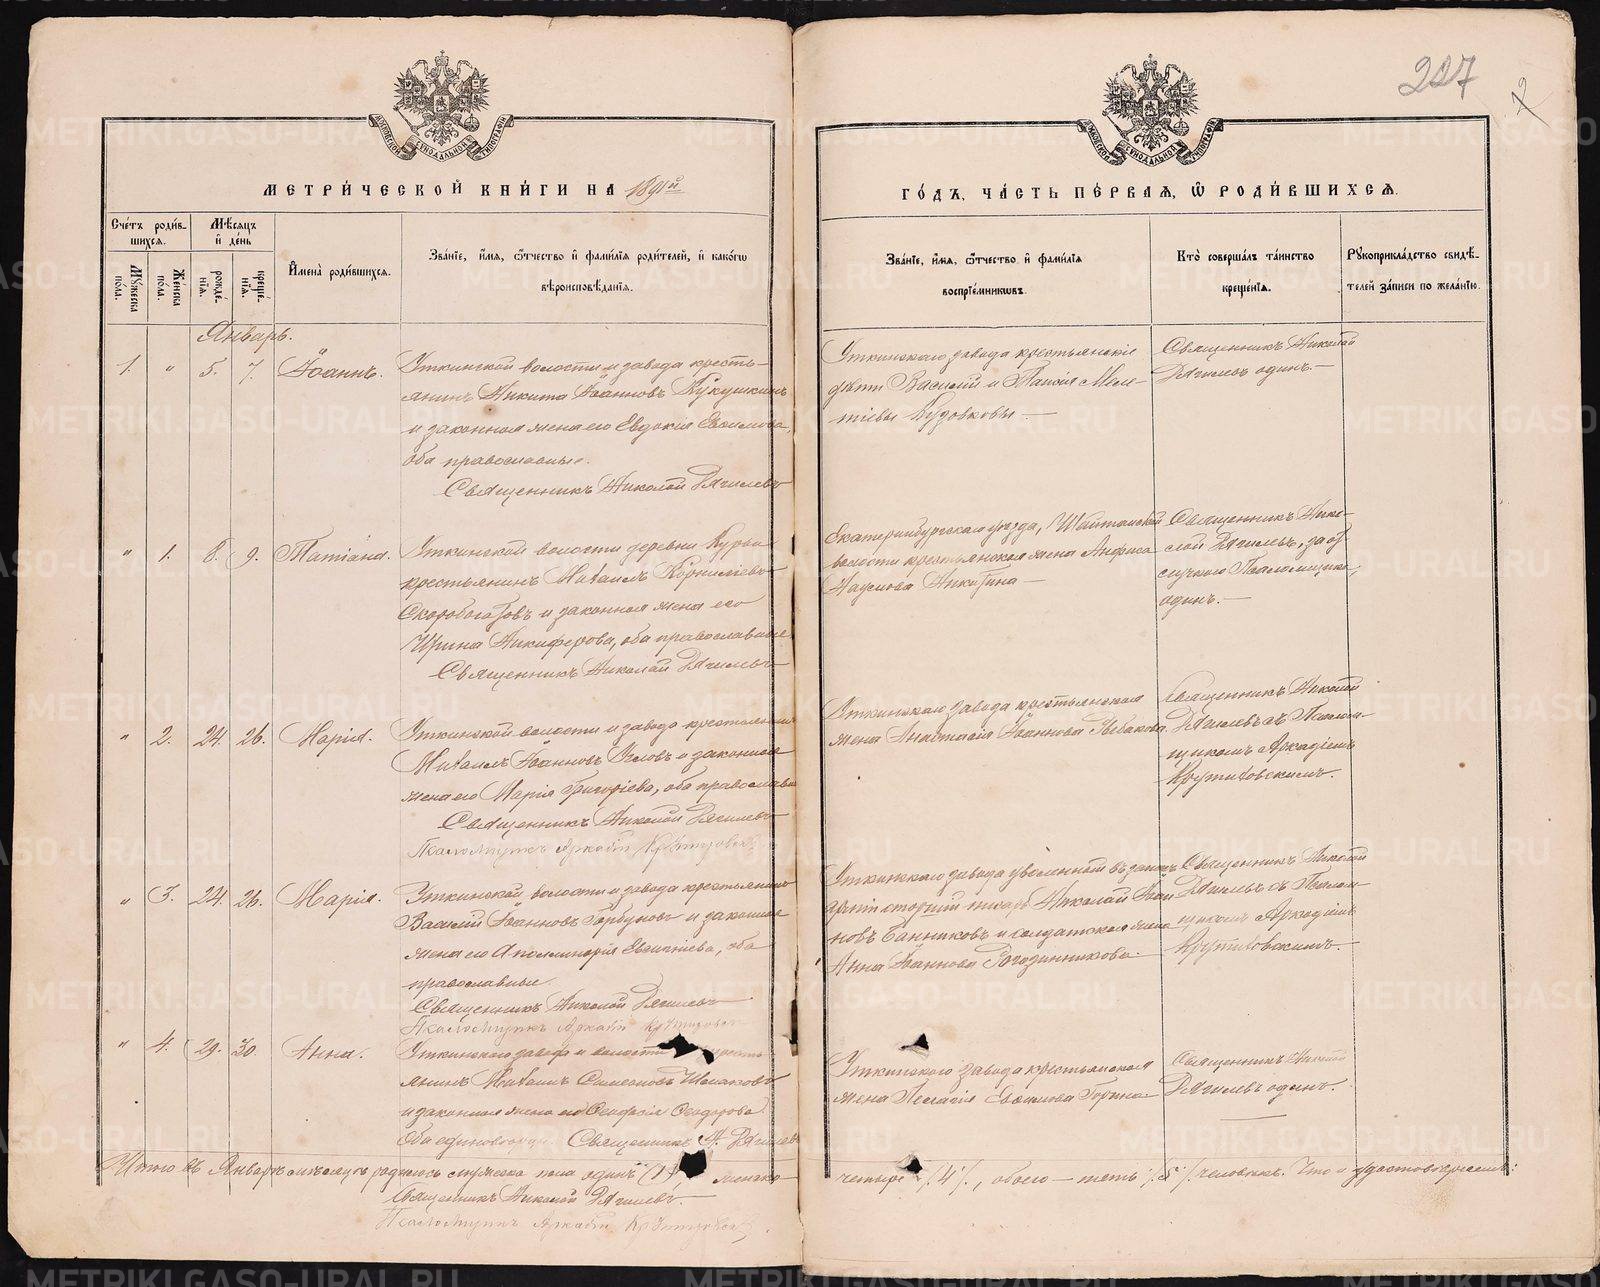 227
2
МЕТРИ́ЧЕСКОЙ КНИ́ГИ НА 1891й
ГО́ДЪ, ЧА́СТЬ ПЕ́РВАѦ, Ѽ РОДИ́ВШИХСѦ.
Сче́тъ роди́вшихсѧ.
Мѣ́сѧцъ и҆ де́нь
Мꙋ́жеска пола.
Же́нска пола.
рожде́нїѧ.
креще́нїѧ.
И҆мена̀ роди́вшихсѧ.
Зва́нїе, и҆́мѧ, ѻ҆́тчество и҆ фами́лїѧ роди́телей, и҆ како́гѡ
вѣроисповѣ́данїѧ.
Зва́нїе, и҆́мѧ, ѻ҆́тчество и҆ фами́лїѧ
воспрїе́мникѡвъ.
Кто̀ соверша́лъ та́инство
креще́нїѧ.
Рꙋкоприкла́дство свидѣ́-
телей за́писи по жела́нїю.
Январь.
1. " 5. 7. Іоаннъ.
Уткинской волости и завода кресть-
янинъ Никита Іоанновъ Кукушкинъ
и законная жена его Евдокія Евѳимова,
оба православные.
Священникъ Николай Дягилевъ
Уткинскаго завода крестьянскіе
дѣти Василій и Таисія Меле-
тіевы Кудовковы.—
Священникъ Николай
Дягилевъ одинъ.—
" 1. 8. 9. Татіана.
Уткинской волости деревни Курьи
крестьянинъ Михаилъ Корниліевъ
Скоробогатовъ и законная жена его
Ирина Никифорова, оба православные
Священникъ Николай Дягилевъ
Екатеринбургскаго уѣзда, Шайтанской
волости крестьянская жена Анфиса
Наумова Никитина—
Священникъ Нико-
лай Дягилевъ, за от-
лучкою Псаломщика,
одинъ.—
" 2. 24. 26. Марія.
Уткинской волости и завода крестьянинъ
Михаилъ Іоанновъ Угловъ и законная
жена его Марія Григоріева, оба православные
Священникъ Николай Дягилевъ
Псаломщикъ Аркадій Крутиховскій
Уткинскаго завода крестьянская
жена Анастасія Іоаннова Рыбакова
Священникъ Николай
Дягилевъ съ Псалом-
щикомъ Аркадіемъ
Крутиховскимъ.
" 3. 24. 26. Марія.
Уткинской волости и завода крестьянинъ
Василій Іоанновъ Горбуновъ и законная
жена его Аполлинарія Евгеніева, оба
православные
Священникъ Николай Дягилевъ
Псаломщикъ Аркадій Крутиховскій
Уткинскаго завода уволенный въ запасъ
арміи старшій писарь Николай Іоан-
новъ Банниковъ и солдатская жена
Анна Іоаннова Рогозинникова.
Священникъ Николай
Дягилевъ съ Псалом-
щикомъ Аркадіемъ
Крутиховскимъ.—
" 4. 29. 30. Анна.
Уткинскаго завода и волости кресть-
янинъ Михаилъ Симеоновъ
и законная жена его Ѳеодосія Ѳеодорова
Оба единовѣрцы. Священникъ Н. Дягилевъ
Уткинскаго завода крестьянская
жена Пелагія Евѳимова
Священникъ Николай
Дягилевъ одинъ.
Итого въ Январѣ мѣсяцѣ родилось мужеска пола одинъ (1), женска—
четыре /4/, обоего—пять /5/ человѣкъ. Что и удостовѣряемъ:
Священникъ Николай Дягилевъ
Псаломщикъ Аркадій Крутиховскій
METRIKI.GASO-URAL.RU